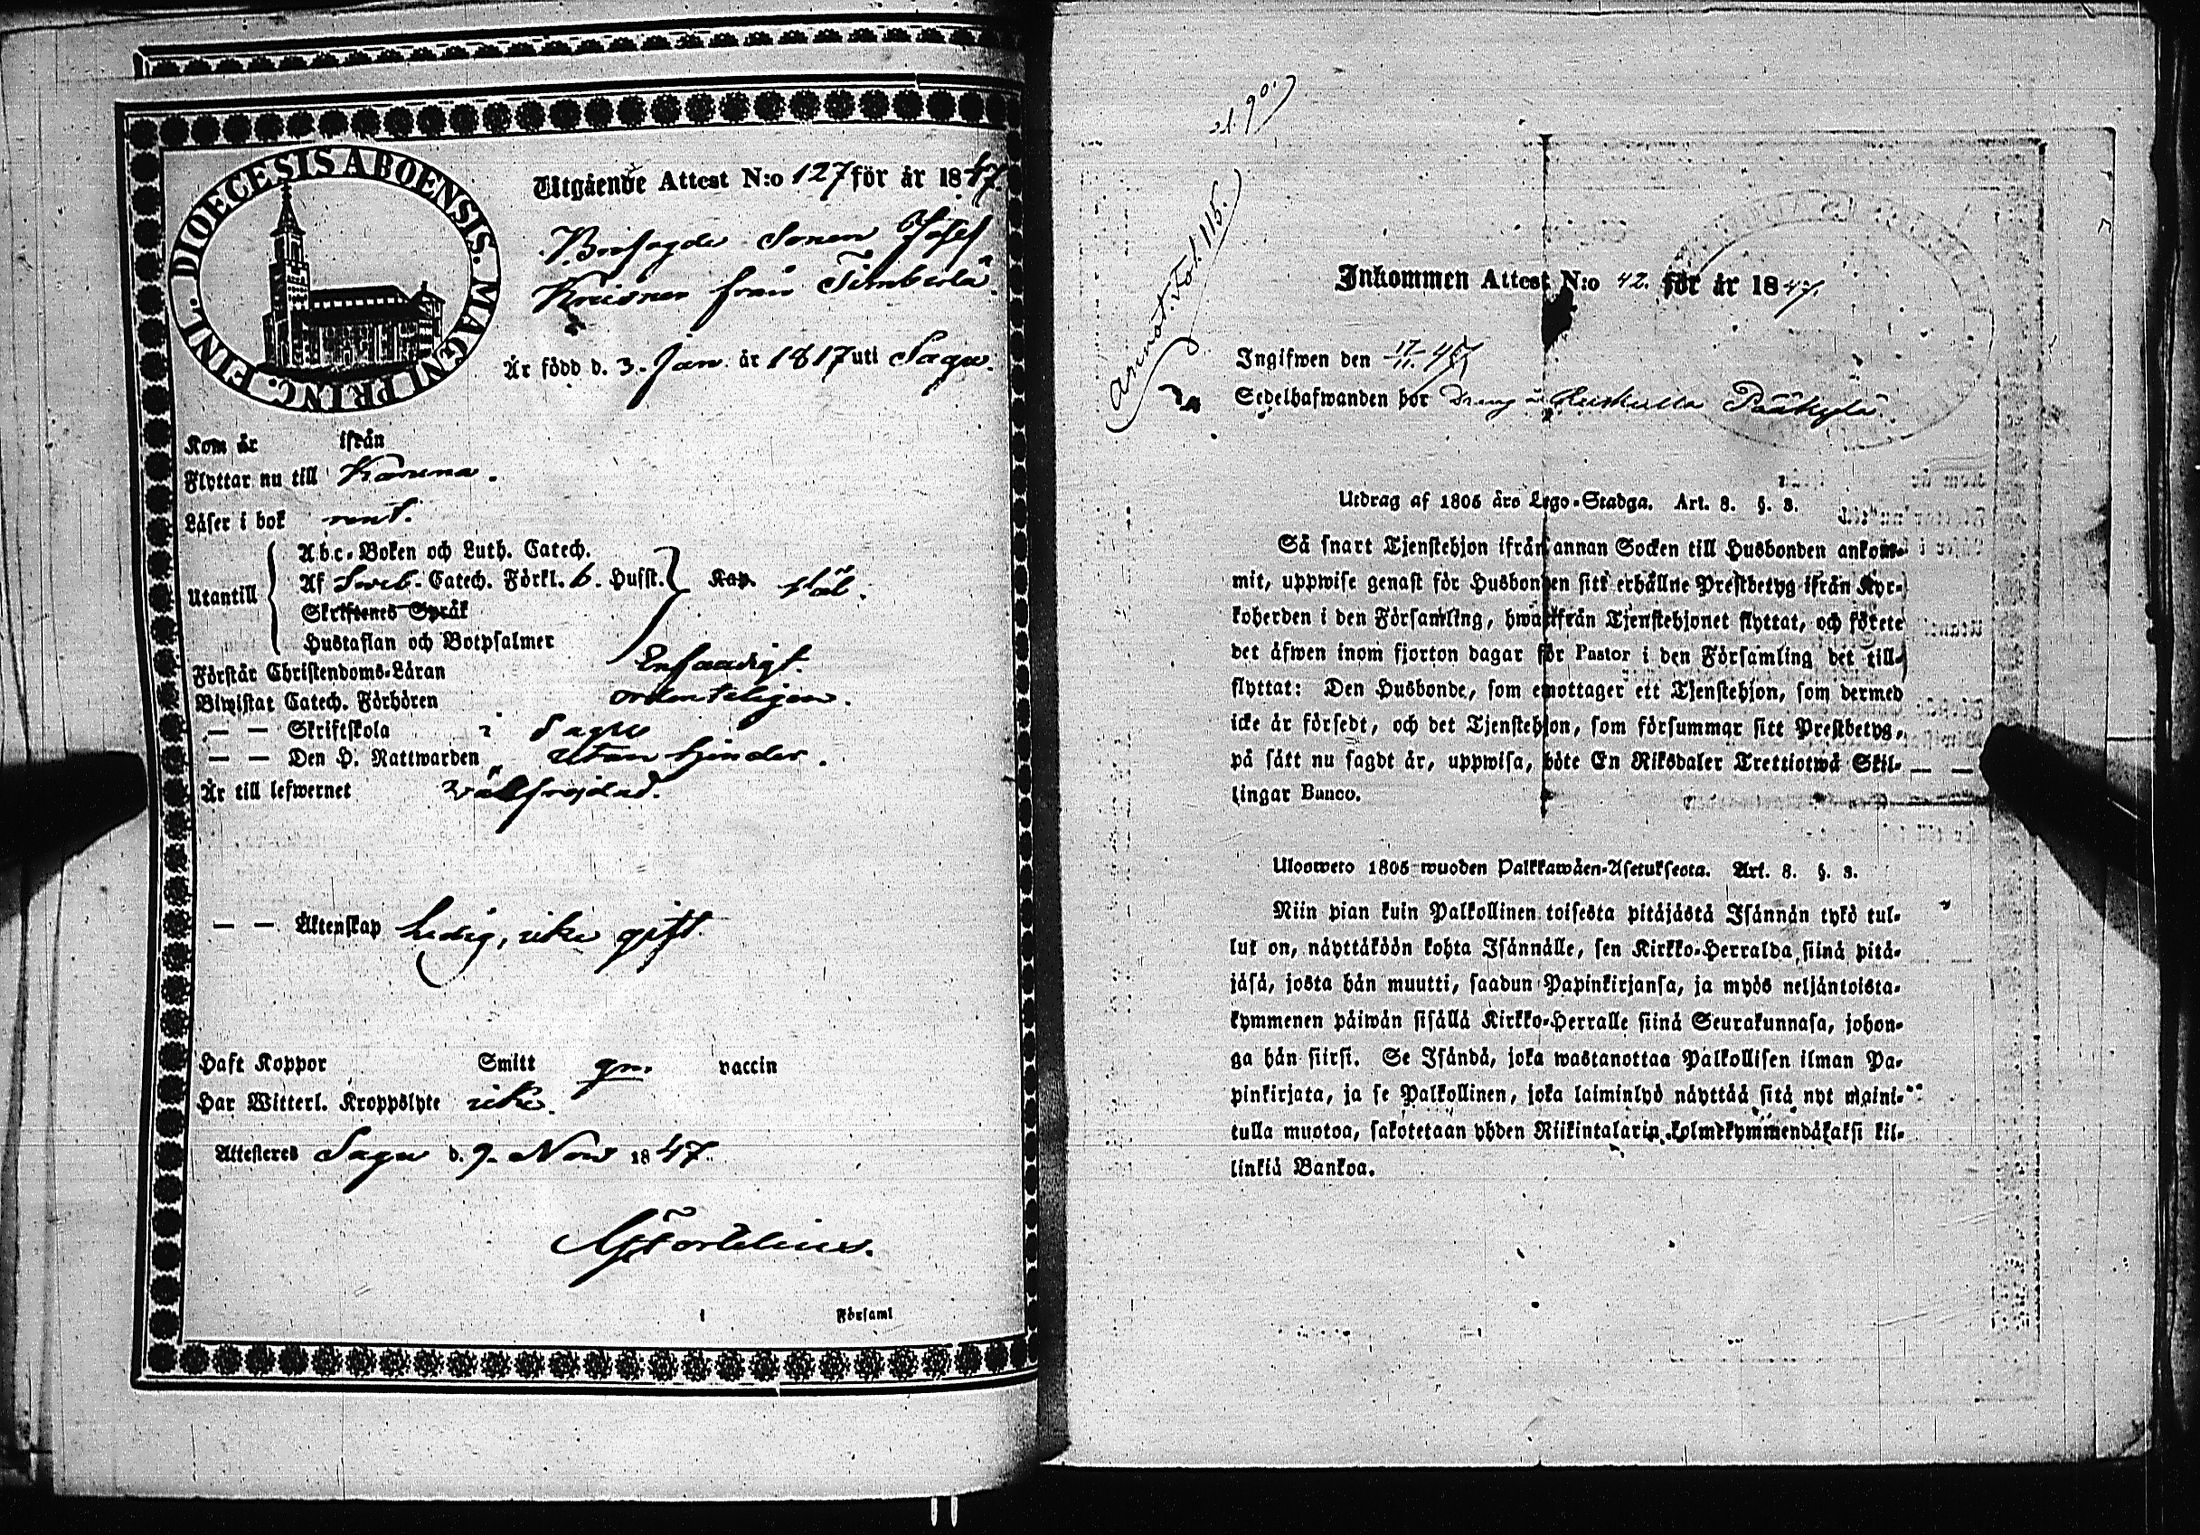 DIOECESIS ABOENSIS. MAGNI PRINC. FINL.
Utgående Attest N:o 127 för år 1847
Sonen Josef
från Timberlä
Är född d. 3. Jan. år 1817 uti Sagu.
Kom år ifrån
Flyttar nu till Karuna.
Läser i bok rent.
Utantill
Abc-Boken och Luth. Catech.
Af Sweb. Catech. Förkl. 6. Husst. Kap.
Skriftenes Språk
Hustaflan och Botpsalmer
Förstår Christendoms-Läran Enfaldigt
Biwistat Catech. Förhören ordenteligen.
— — Skriftskola i Sagu
— — Den H. Nattwarden utan hinder.
Är till lefwernet wälfrejdad.
— — Äktenskap Ledig, icke gift
Haft Koppor Smitt gm. vaccin
Har Witterl. Kroppslyte icke.
Attesteras Sagu d. 9. Nov 1847.
i Församl
s. 90.
annot. fol. 115.
Inkommen Attest N:o 42. för år 1847.
Ingifwen den 17/11 47
Sedelhafwanden bor Dräng Päükylä
Utdrag af 1805 års Lego-Stadga. Art. 8. §. 3.
Så snart Tjenstehjon ifrån annan Socken till Husbonden ankom-
mit, uppwise genast för Husbonden sitt erhållne Prestbetyg ifrån Kyr-
koherden i den Församling, hwarifrån Tjenstehjonet flyttat, och förete
det äfwen inom fjorton dagar för Pastor i den Församling det till-
flyttat: Den Husbonde, som emottager ett Tjenstehjon, som dermed
icke är försedt, och det Tjenstehjon, som försummar sitt Prestbetyg,
på sätt nu sagdt är, uppwisa, böte En Riksdaler Trettiotwå Skil-
lingar Banco.
Ulosweto 1805 wuoden Palkkawäen-Asetuksesta. Art. 8. §. 3.
Niin pian kuin Palkollinen toisesta pitäjästä Isännän tykö tul-
lut on, näyttäköön kohta Isännälle, sen Kirkko-Herralda siinä pitä-
jäsä, josta hän muutti, saadun Papinkirjansa, ja myös neljäntoista-
kymmenen päiwän sisällä Kirkko-Herralle siinä Seurakunnasa, johon-
ga hän siirsi. Se Isändä, joka wastanottaa Palkollisen ilman Pa-
pinkirjata, ja se Palkollinen, joka laiminlyö näyttää sitä nyt maini-
tulla muotoa, sakotetaan yhden Riikintalarin kolmekymmendäkaksi kil-
linkiä Bankoa.